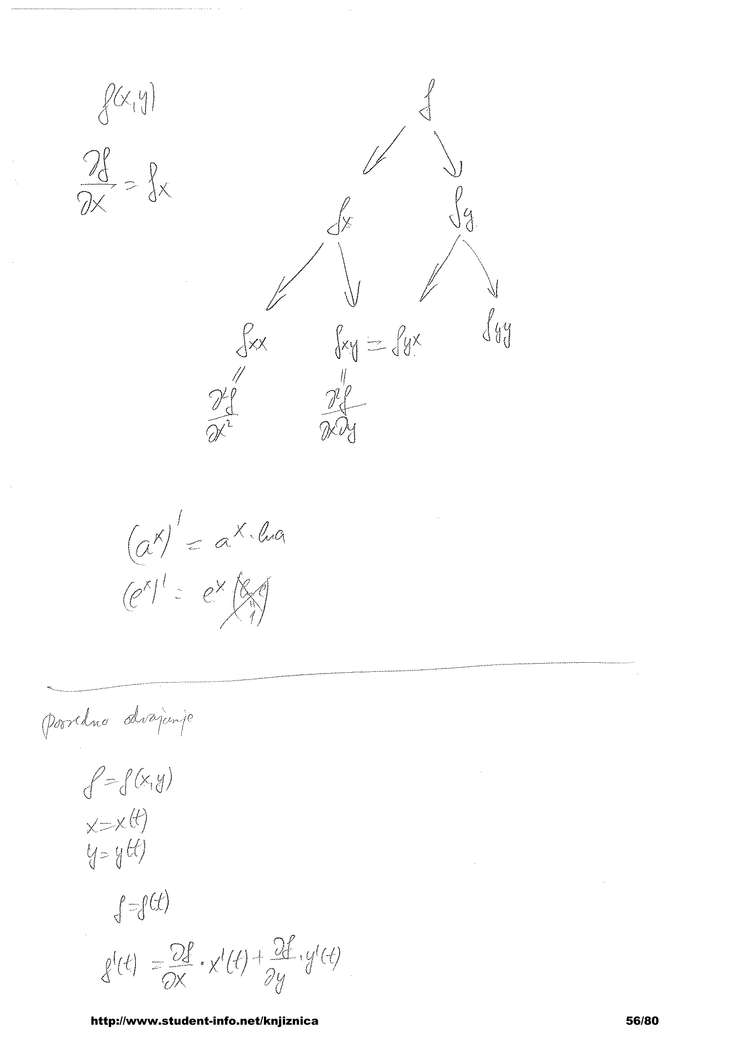 f(x,y)
∂f/∂x = fx
f
fx fy
fxx fxy = fyx fyy
∂²f/∂x² ∂²f/∂x∂y
(a^x)' = a^x · ln a
(e^x)' = e^x
posredno odvajanje
f = f(x,y)
x = x(t)
y = y(t)
f = f(t)
f'(t) = ∂f/∂x · x'(t) + ∂f/∂y · y'(t)
http://www.student-info.net/knjiznica 56/80